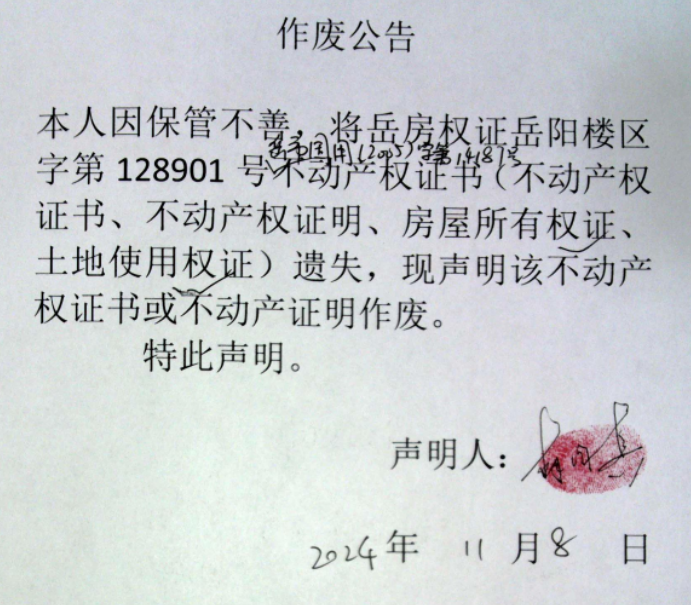 作废公告
本人因保管不善，将岳房权证岳阳楼区
国用(2005)字第
字第 128901 号不动产权证书（不动产权
证书、不动产权证明、房屋所有权证、
土地使用权证）遗失，现声明该不动产
权证书或不动产证明作废。
特此声明。
声明人：
2024年 11 月8 日